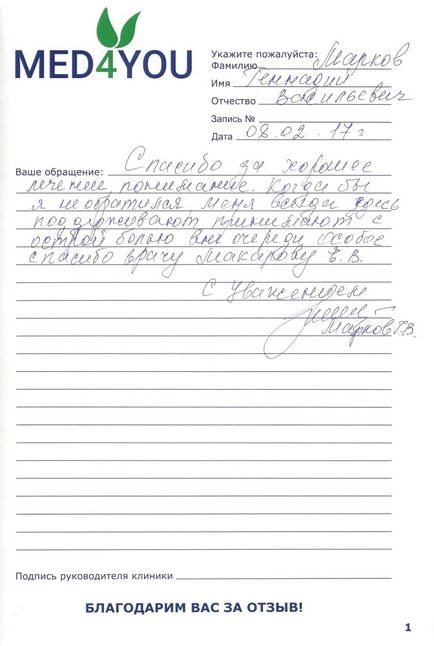 MED4YOU
Укажите пожалуйста:
Фамилию Марков
Имя Геннадий
Отчество Васильевич
Запись №
Дата 08.02.17г
Ваше обращение: Спасибо за хорошее
лечение понимание. Когда бы
я не обратился меня всегда здесь
поддерживают принимают с
острой болью вне очереди особое
спасибо врачу Макарову Е.В.
С Уважением
Марков Г.В.
Подпись руководителя клиники
БЛАГОДАРИМ ВАС ЗА ОТЗЫВ!
1